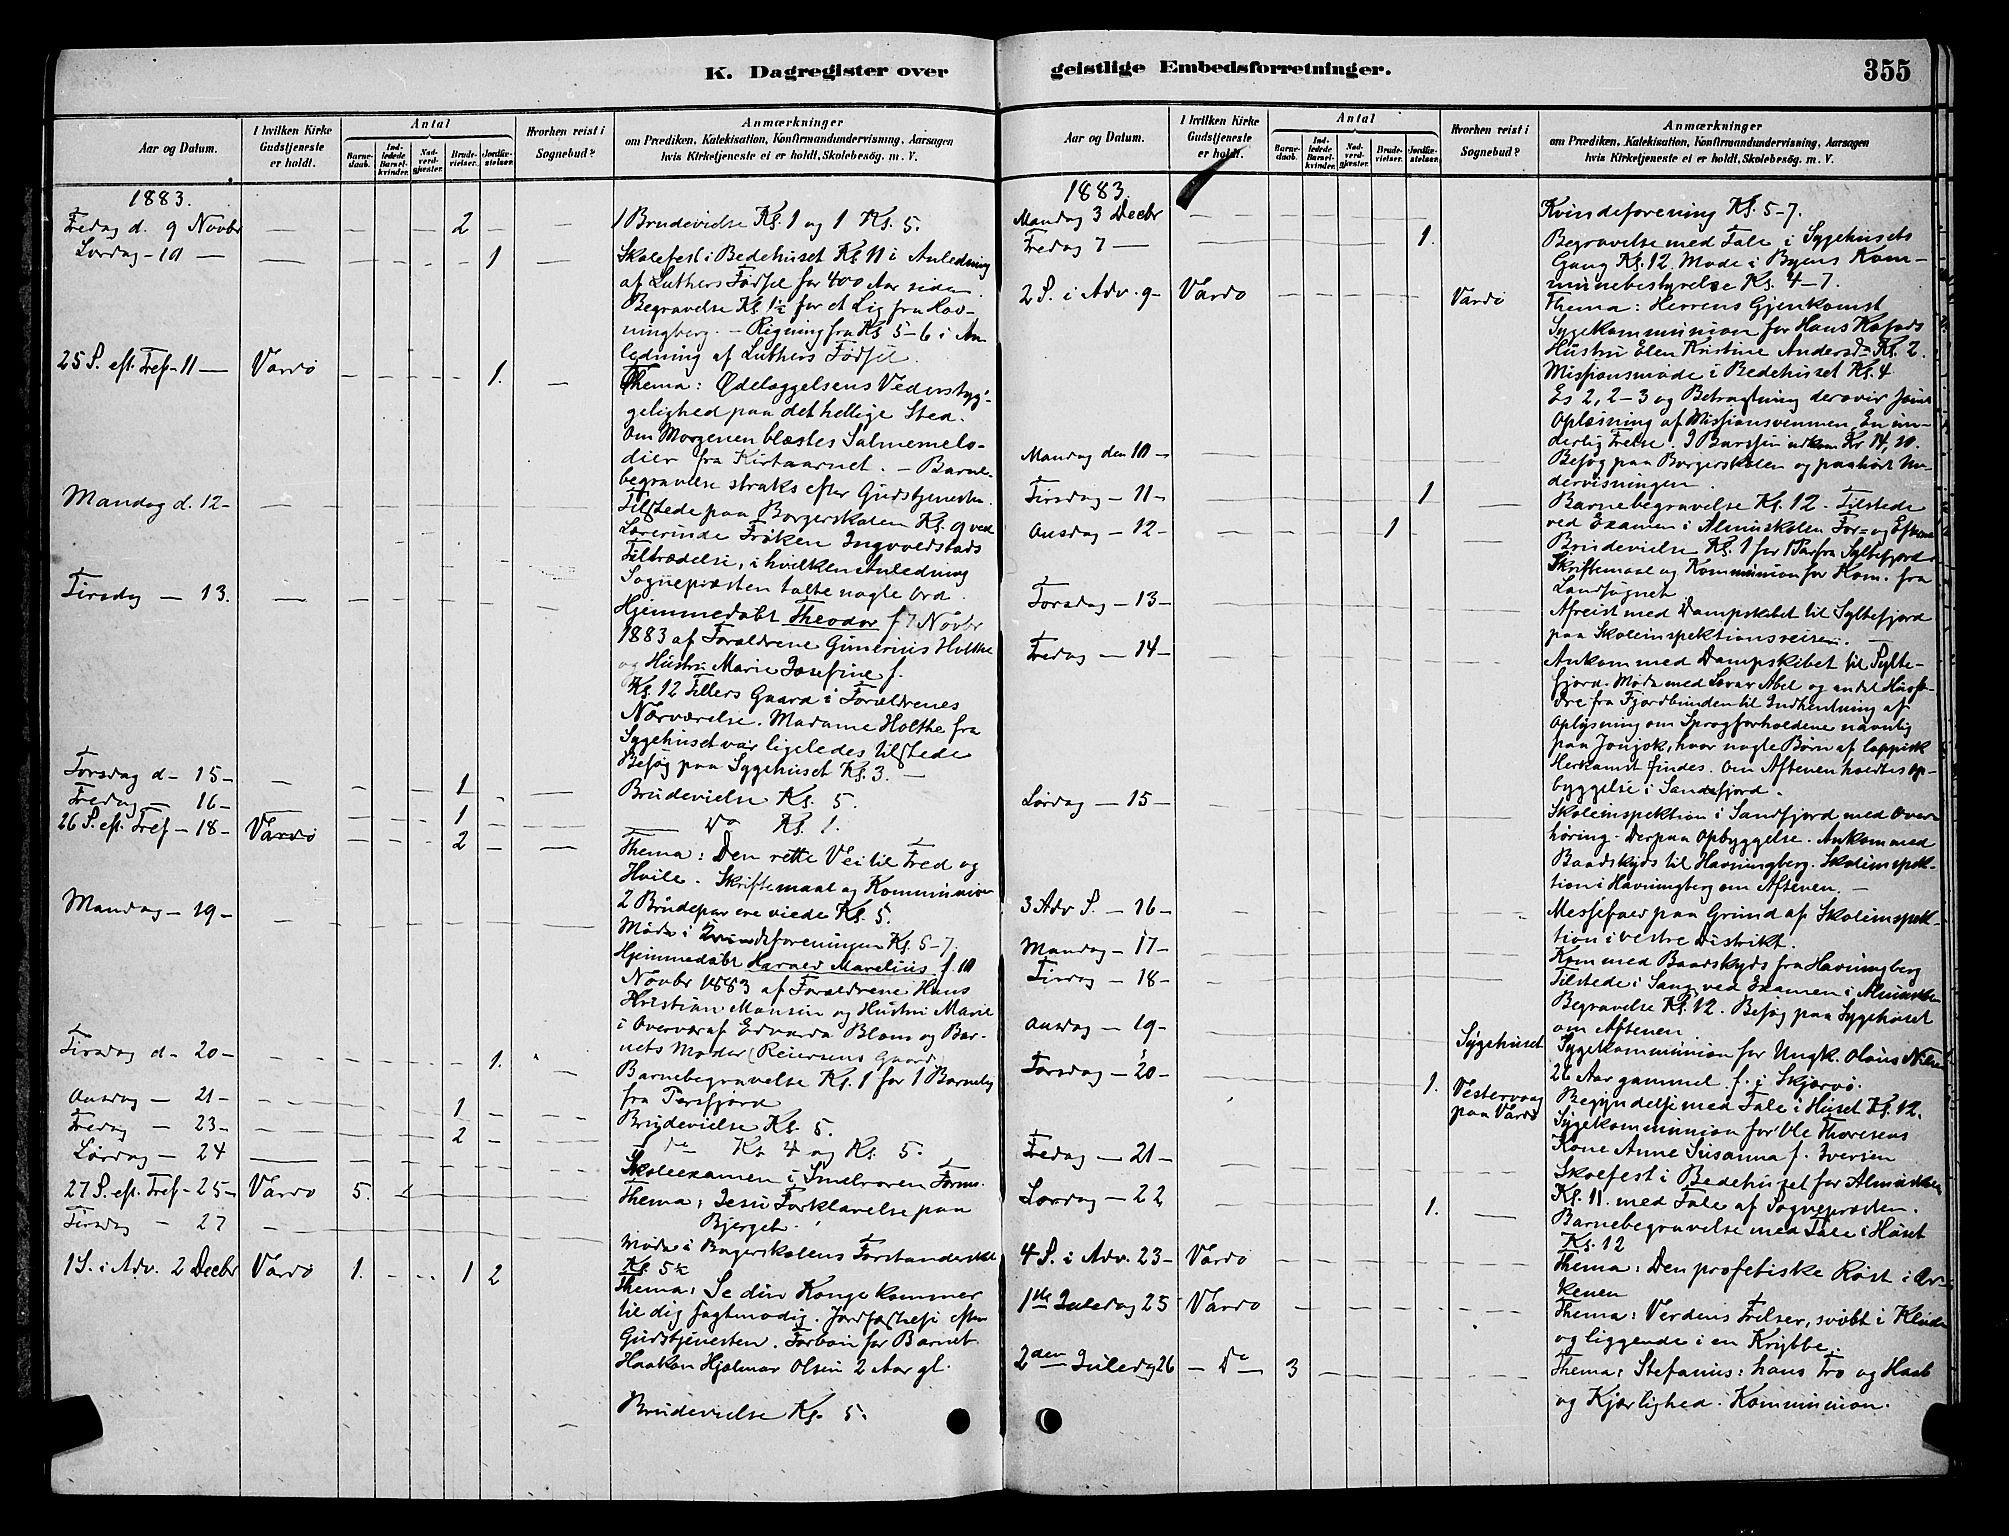 K. Dagregister over
geistlige Embedsforretninger.
355
Aar og Datum.
I hvilken Kirke Gudstjeneste er holdt.
Antal
Barnedaab.
Indledede Barselkvinder.
Nadverdgjester.
Brudevielser.
Jordfæstelser.
Hvorhen reist i Sognebud?
Anmærkninger
om Prædiken, Katekisation, Konfirmandundervisning, Aarsagen
hvis Kirketjeneste ei er holdt, Skolebesøg. m. V.
1883.
Fredag d. 9 Novbr 2 1 Brudevielse Kl. 1 og 1 Kl. 5.
Lørdag - 10 — 1 Skolefest i Bedehuset Kl 11 i Anledning
af Luthers Fødsel for 400 Aar siden.
Begravelse Kl. 1½ for et Lig fra Hav-
ningberg. — Ringning fra Kl 5-6 i An-
ledning af Luthers Fødsel.
25 S. eft. Tref - 11 — Vardø 1. Thema: Ødelæggelsens Vederstyg-
gelighed paa det hellige Sted.
Om Morgenen blæstes Salmemelo-
dier fra Kirtaarnet. — Barne-
begravelse straks efter Gudstjenesten.
Mandag d. 12 - Tilstede paa Borgerskolen Kl. 9 ved
Lærerinde Frøken Ingvoldstads
Tiltrædelse, i hvilken Anledning
Sognepræsten talte nogle Ord.
Tirsdag — 13. Hjemmedøbt Theodor f 7 Novbr
1883 af Forældrene Gunerius Holthe
og Hustru Marie Josefine f.
Kl. 12 Tillers Gaard i Forældrenes
Nærværelse. Madame Holthe fra
Sygehuset var ligeledes tilstede
Besøg paa Sygehuset Kl. 3. —
Torsdag d - 15 - 1 Brudevielse Kl. 5.
Fredag — 16 - 1 Do Kl. 1.
26 S. eft. Tref - 18 - Vardø 2 Thema: Den rette Vei til Fred og
Hvile. Skriftemaal og Kommunion
2 Brudepar ere viede Kl. 5.
Mandag - 19 - Møde i Kvindeforeningen Kl. 5-7.
Hjemmedøbt Harald Marelius f. 10
Novbr 1883 af Forældrene Hans
Kristian Monsen og Hustru Marie
i Overvær af Edvarda Blom og Bar-
nets Moder (Reiersens Gaard)
Tirsdag d - 20 - 1. Barnebegravelse Kl. 1 for 1 Barnelig
fra Persfjord
Onsdag — 21 - 1 Brudevielse Kl. 5.
Fredag — 23 - 2 do Kl 4 og Kl. 5.
Lørdag — 24 Skoleexamen i Form.
27 S. eft. Tref - 25 - Vardø 5. Thema: Jesu Forklarelse paa
Bjerget.
Tirsdag — 27 Møde i Borgerskolens Forstanderskab
Kl. 5½
1 S. i Adv. 2 Decbr Vardø 1. 1 2 Thema: Se din Konge kommer
til dig sagtmodig. Jordfæstelse efter
Gudstjenesten. Forbøn for Barnet
Haakon Hjalmar Olsen 2 Aar gl.
Brudevielse Kl. 5.
Aar og Datum.
I hvilken Kirke Gudstjeneste er holdt.
Antal
Barnedaab.
Indledede Barselkvinder.
Nadverdgjester.
Brudevielser.
Jordfæstelser.
Hvorhen reist i Sognebud?
Anmærkninger
om Prædiken, Katekisation, Konfirmandundervisning, Aarsagen
hvis Kirketjeneste ei er holdt, Skolebesøg. m. V.
1883.
Mandag 3 Decbr Kvindeforening Kl. 5-7.
Fredag 7 — 1. Begravelse med Tale i Sygehusets
Gang Kl. 12. Møde i Byens Kom-
munebestyrelse Kl. 4-7.
2 S. i Adv. 9 - Vardø Vardø Thema: Herrens Gjenkomst
Sygekommunion for Hans Kofods
Hustru Elen Kristine Andersd. Kl. 2.
Missionsmøde i Bedehuset Kl. 4
Es 2, 2-3 og Betragtning derover samt
Oplæsning af Missionsvennen En un-
derlig Frelse. I Bøssen indkom Kr. 14,20.
Mandag den 10 - Besøg paa Borgerskolen og paahørt Un-
dervisningen.
Tirsdag — 11 - 1 Barnebegravelse Kl. 12. Tilstede
ved Examen i Almuskolen For- og Efterm
Onsdag — 12 - 1 Brudevielse Kl. 1 for 1 Par fra Syltefjord
Skriftemaal og Kommunion for Kom. fra
Landsognet
Torsdag — 13 - Afreist med Dampskibet til Syltefjord
paa Skoleinspektionsreise. —
Fredag — 14 - Ankom med Dampskibet til Sylte-
fjord. Møde med Lærer Abel og endel Husfæ-
dre fra Fjordbunden til Indhentning af
Oplysning om Sprogforholdene navnlig
paa Jonjok, hvor nogle Børn af lappisk
Herkomst findes. Om Aftenen holdtes Op-
byggelse i Sandfjord.
Lørdag — 15 - Skoleinspektion i Sandfjord med Over-
høring. Derpaa Opbyggelse. Ankom med
Baadskyds til Havningberg. Skoleinspek-
tion i Havningberg om Aftenen. —
3 Adv S. — 16 - Messefald paa Grund af Skoleinspek-
tion i vestre Distrikt.
Mandag — 17 - Kom med Baadskyds fra Havningberg
Tirsdag — 18 - Tilstede i Sang ved Examen i Almueskolen
Begravelse Kl. 12. Besøg paa Sygehuset
om Aftenen.
Onsdag — 19 - Sygehuset Sygekommunion for Ungk. Olaus Nilsen
26 Aar gammel f. i Skjærvø.
Torsdag — 20 - 1. Vestervaag
paa Vardø Begyndelse med Tale i Huset Kl. 12.
Sygekommunion for Ole Thoresens
Kone Anne Susanna f. Iversen
Fredag — 21 - Skolefest i Bedehuset for Almueskolen
Kl. 11. med Tale af Sognepræsten.
Lørdag — 22 1. Barnebegravelse med Tale i Huset
Kl. 12
4 S. i Adv. 23 - Vardø Thema: Den profetiske Røst i Ør-
kenen
1ste Juledag 25 Vardø Thema: Verdens Frelser, svøbt i Klude
og liggende i en Krybbe.
2den Juledag 26 — Do — 3 Thema: Stefanus: hans Tro og Haab
og Kjærlighed. Kommunion.